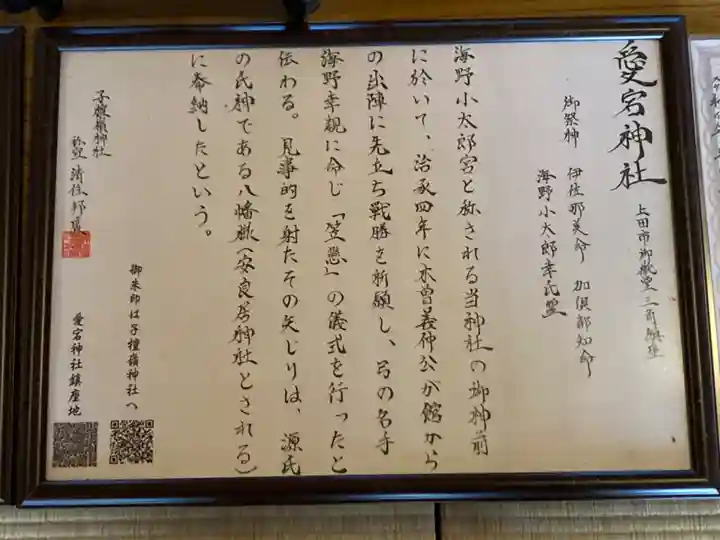 愛宕神社
上田市御嶽堂三百
御祭神 伊佐那美命 加倶都知命
海野小太郎幸氏霊
海野小太郎宮と称される当神社の御神前
に於いて、治承四年に木曽義仲公が館から
の出陣に先立ち戦勝を祈願し、弓の名手
海野幸親に命じ「笠懸」の儀式を行ったと
伝わる。見事的を射たその矢じりは、源氏
の氏神である八幡嶽(安良居神社とされる)
に奉納したという。
子檀嶺神社
御朱印は子檀嶺神社へ
愛宕神社鎮座地